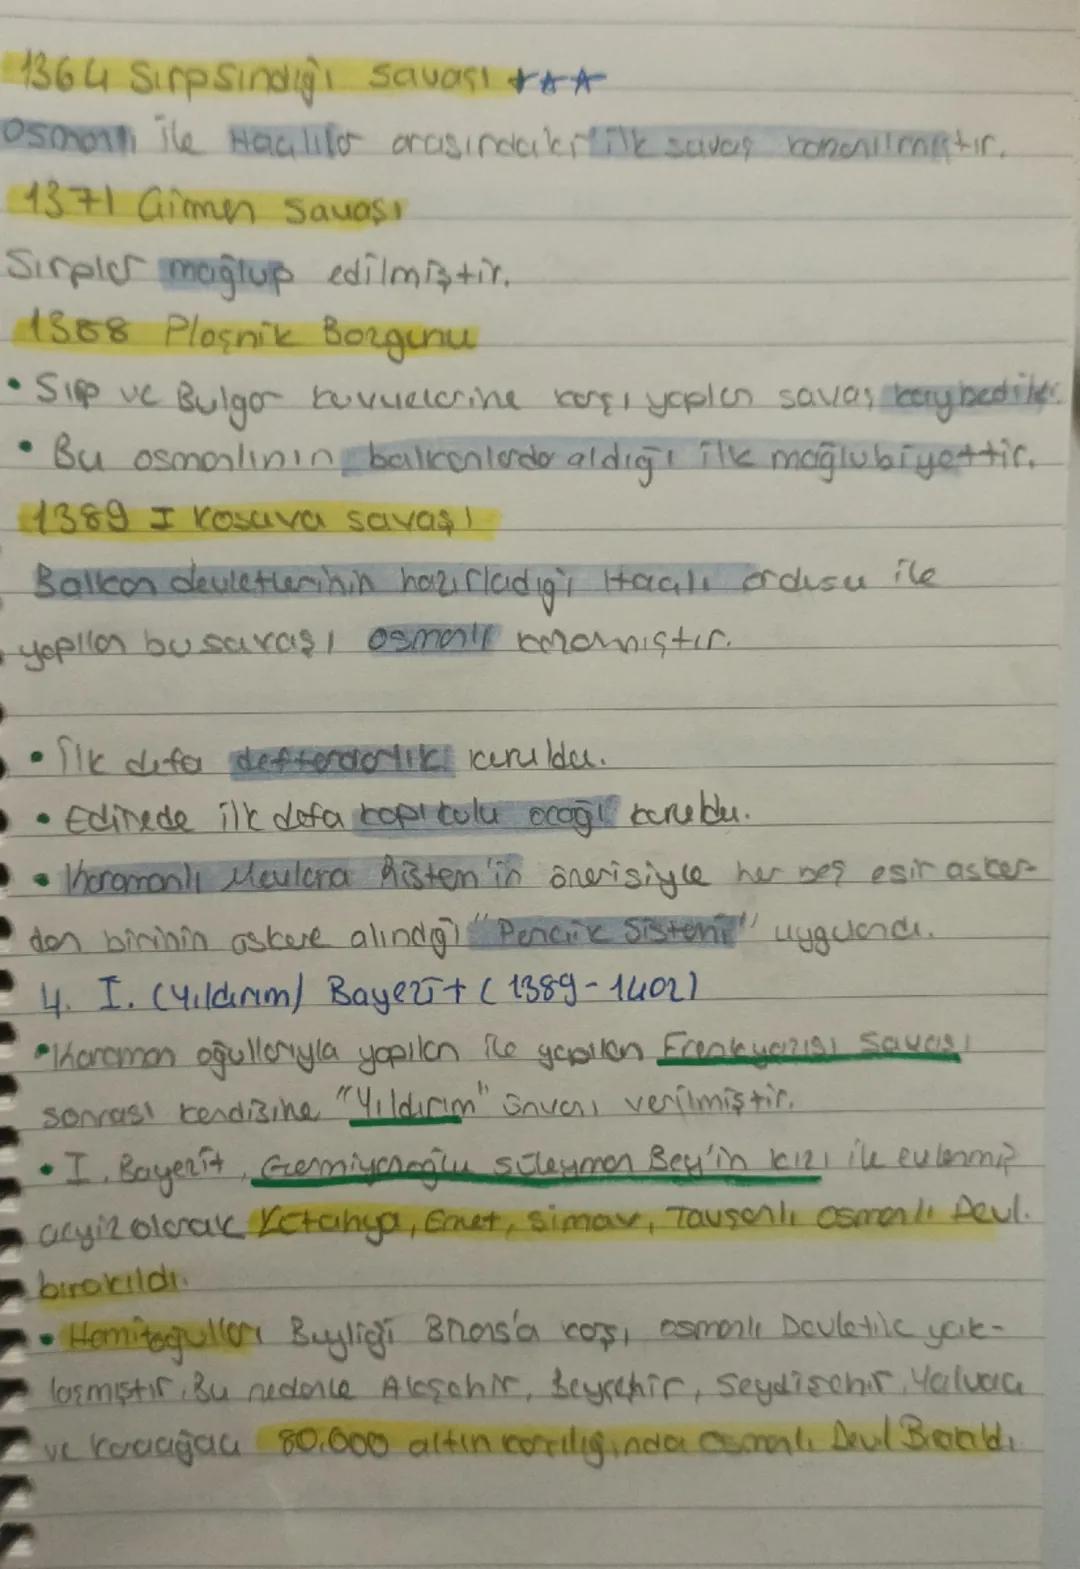 1364 Sırpsındığı savaşı ★★★
Osmanlı ile Haçlılar arasındaki ilk savaş kazanılmıştır.
1371 Çirmen Savaşı
Sırplar mağlup edilmiştir.
1388 Ploşnik Bozgunu
• Sırp ve Bulgar kuvvetlerine karşı yapılan savaş kaybedilir.
• Bu osmanlının balkanlarda aldığı ilk mağlubiyettir.
1389 I Kosova savaşı
Balkan devletlerinin hazırladığı Haçlı ordusu ile
yapılan bu savaşı osmanlı kazanmıştır.
• İlk defa defterdarlık kuruldu.
• Edirnede ilk defa kapı kulu ocağı kuruldu.
• Karamanlı Mevlana Rüstem'in önerisiyle her beş esir asker-
den birinin askere alındığı "Pencik Sistemi" uygulandı.
4. I. (Yıldırım) Bayezit (1389-1402)
• Karaman oğullarıyla yapılan ile yapılan Frenkyazısı Savaşı
sonrası kendisine "Yıldırım" ünvanı verilmiştir.
• I. Bayezit, Germiyanoğlu süleyman Bey'in kızı ile evlenmiş
çeyiz olarak Kütahya, Emet, simav, Tavşanlı osmanlı Devl.
bırakıldı.
• Hamitoğulları Beyliği karşı osmanlı Devletile yak-
laşmıştır. Bu nedenle Akşehir, Beyşehir, Seydişehir, Yalvaç
ve karaağaç 80.000 altın karşılığında osmanlı Devl Bırakıldı